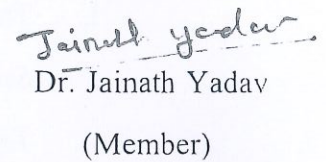 Jainath Yadav
Dr. Jainath Yadav
(Member)